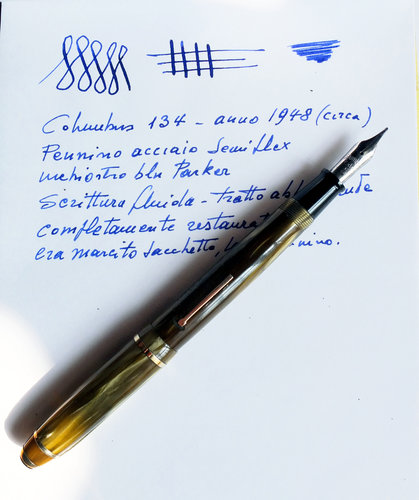 Columbus 134 - anno 1948 (circa)
Pennino acciaio Semiflex
inchiostro blu Parker
Scrittura fluida - tratto
completamente
era marcito sacchetto,